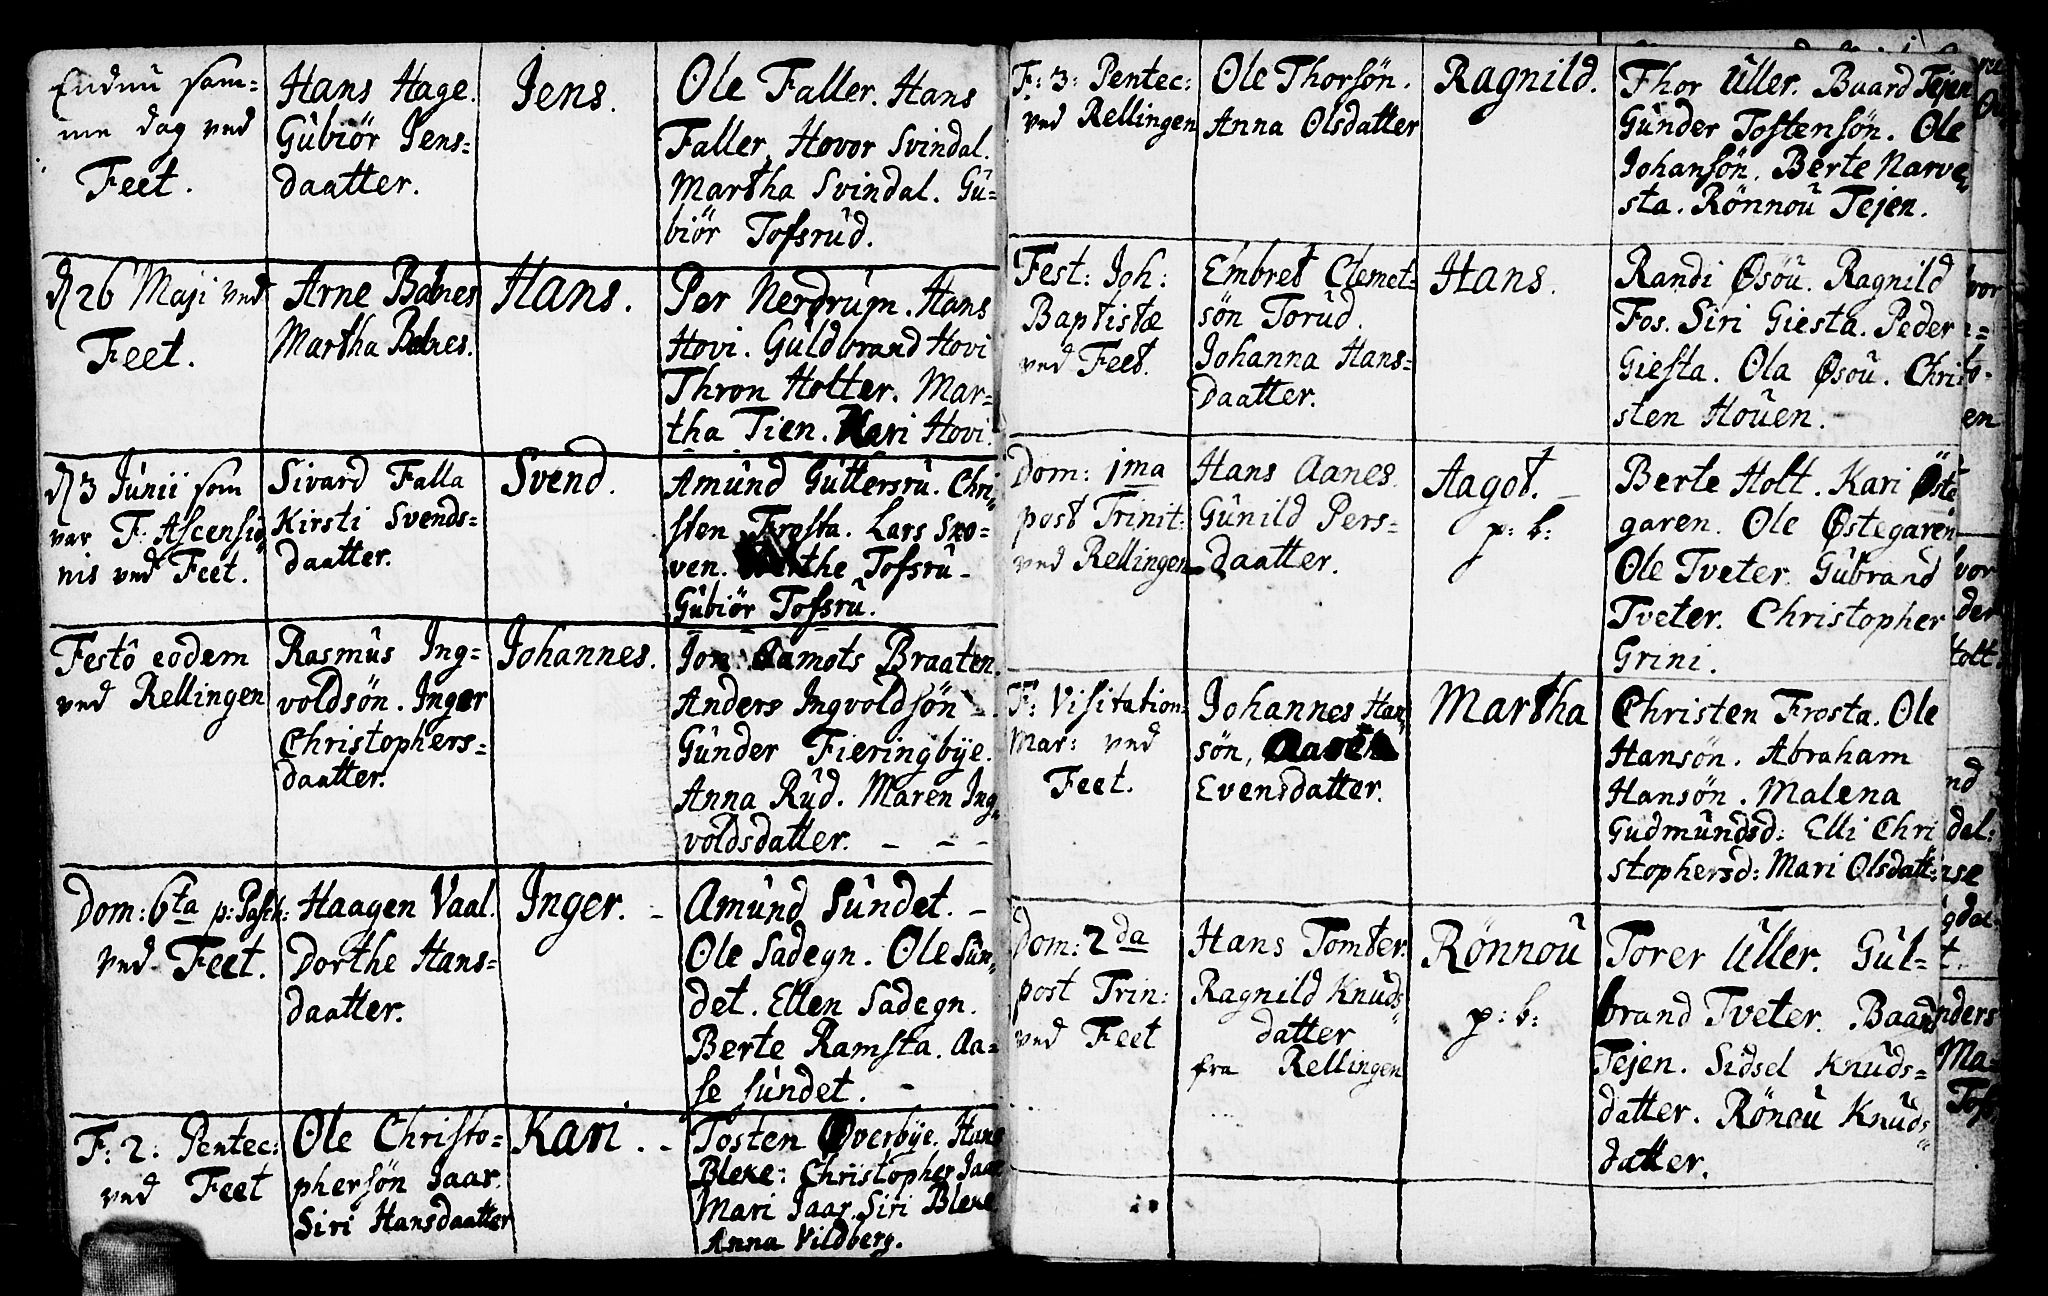 Endnu sam=
me dag ved
Feet.
Hans Hage.
Gubiör Jens=
daatter.
Jens.
Ole Faller. Hans
Faller, Hovor Svindal.
Martha Svindal. Gu=
biör Tofsrud.
d 26 Maji ved
Feet.
Arne Balnes
Martha Balnes.
Hans.
Per Nerdrum. Hans
Hovi. Guldbrand Hovi
Thron Holter. Mar=
tha Tien. Kari Hovi.
d 3 Junii som
var F: Ascensio
nis ved Feet.
Sivard Falla
Kirsti Svends=
daatter.
Svend.
Amund Guttersru. Chri=
sten Frosta. Lars Sko=
ven. Tofsru -
Gubiör Tofsru.
Festô eodem
ved Rellingen
Rasmus Ing=
voldsön. Inger
Christophers=
daatter.
Johannes.
Jon Aamots Braaten.
Anders Ingvoldsön -.
Gunder Fieringbye.
Anna Rud. Maren Ing=
voldsdatter. - - -
Dom: 6ta p: Pasch:
ved Feet.
Haagen Vaal.
Dorthe Hans=
daatter.
Inger. -
Amund Sundet. -
Ole Sadegn. Ole Sun=
det. Ellen Sadegn.
Berte Ramsta. Aa=
se Sundet. -
F: 2: Pentec:
ved Feet
Ole Christo=
phersön Jaar.
Siri Hansdaatter
Kari. -
Tosten Øverbye. Hans
Bleke: Christopher Jaar
Mari Jaar. Siri Bleke
Anna Vildberg.
F: 3: Pentec:
ved Rellingen
Ole Thorsön.
Anna Olsdatter
Ragnild.
Thor Uller. Baard Tejen
Gunder Tostensön. Ole
Johansön. Berte Narve=
sta. Rönnou Tejen.
Fest: Joh:
Baptistæ
ved Feet.
Embret Clemet=
sön Torud.
Johanna Hans=
Daatter.
Hans.
Randi Øsöu. Ragnild
Fos. Siri Giesta. Peder
Giesta. Ola Øsou. Chri
sten Houen.
Dom: 1ma
post Trinit:
ved Rellingen
Hans Aanes.
Gunild Pers=
daatter.
Aagot. -
p: b:
Berte Holt. Kari Øste
garen. Ole Østegaren
Ole Tveter. Gubrand
Tveter. Christopher
Grini.
F: Visitation:
Mar: ved
Feet.
Johannes Han=
sön,
Evensdatter.
Martha
Christen Frosta. Ole
Hansön. Abraham
Hansön. Malena
Gudmundsd: Elli Chri
stophersd: Mari Olsdatt:
Dom: 2da
post Trin:
ved Feet
Hans Tomter.
Ragnild Knuds=
datter
fra Rellingen
Rönnou
p: b:
Torer Uller. Gul=
brand Tveter. Baard
Tejen. Sidsel Knuds=
datter. Rönou Knuds=
datter.